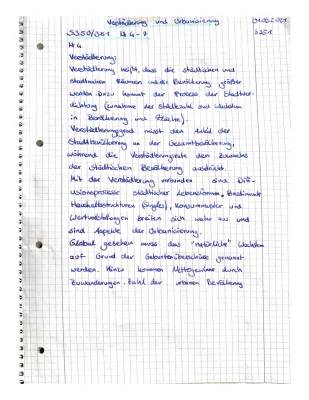 Verstädterung und Urbanisierung
S350/351 M 4-7
M4
Verstädterung:
Verstädterung heißt, dass die städtischen und
stadtnahen Räumen und die Bevölkerung größer
werden. Dazu kommt der Prozess der Stadtver-
dichtung (Zunahme der Städtezahl und Wachsen
in Bevölkerung und Fläche).
Verstädterungsgrad misst den Anteil der
Stadtbevölkerung an der Gesamtbevölkerung,
während die Verstädterungsrate den Zuwachs
der städtischen Bevölkerung ausdrückt.
Mit der Verstädterung verbunden sind Diff-
usionsprozesse städtischer Lebensformen. Bestimmte
Haushaltsstrukturen (Singles), Konsummuster und
Wertvorstellungen breiten sich weiter aus und
sind Aspekte der Urbanisierung.
Global gesehen muss das "natürliche" Wachsen
auf Grund der Geburtenüberschüsse genannt
werden. Hinzu kommen Mittegewinne durch
Zuwanderungen. Zahl der urbanen Bevölkerung